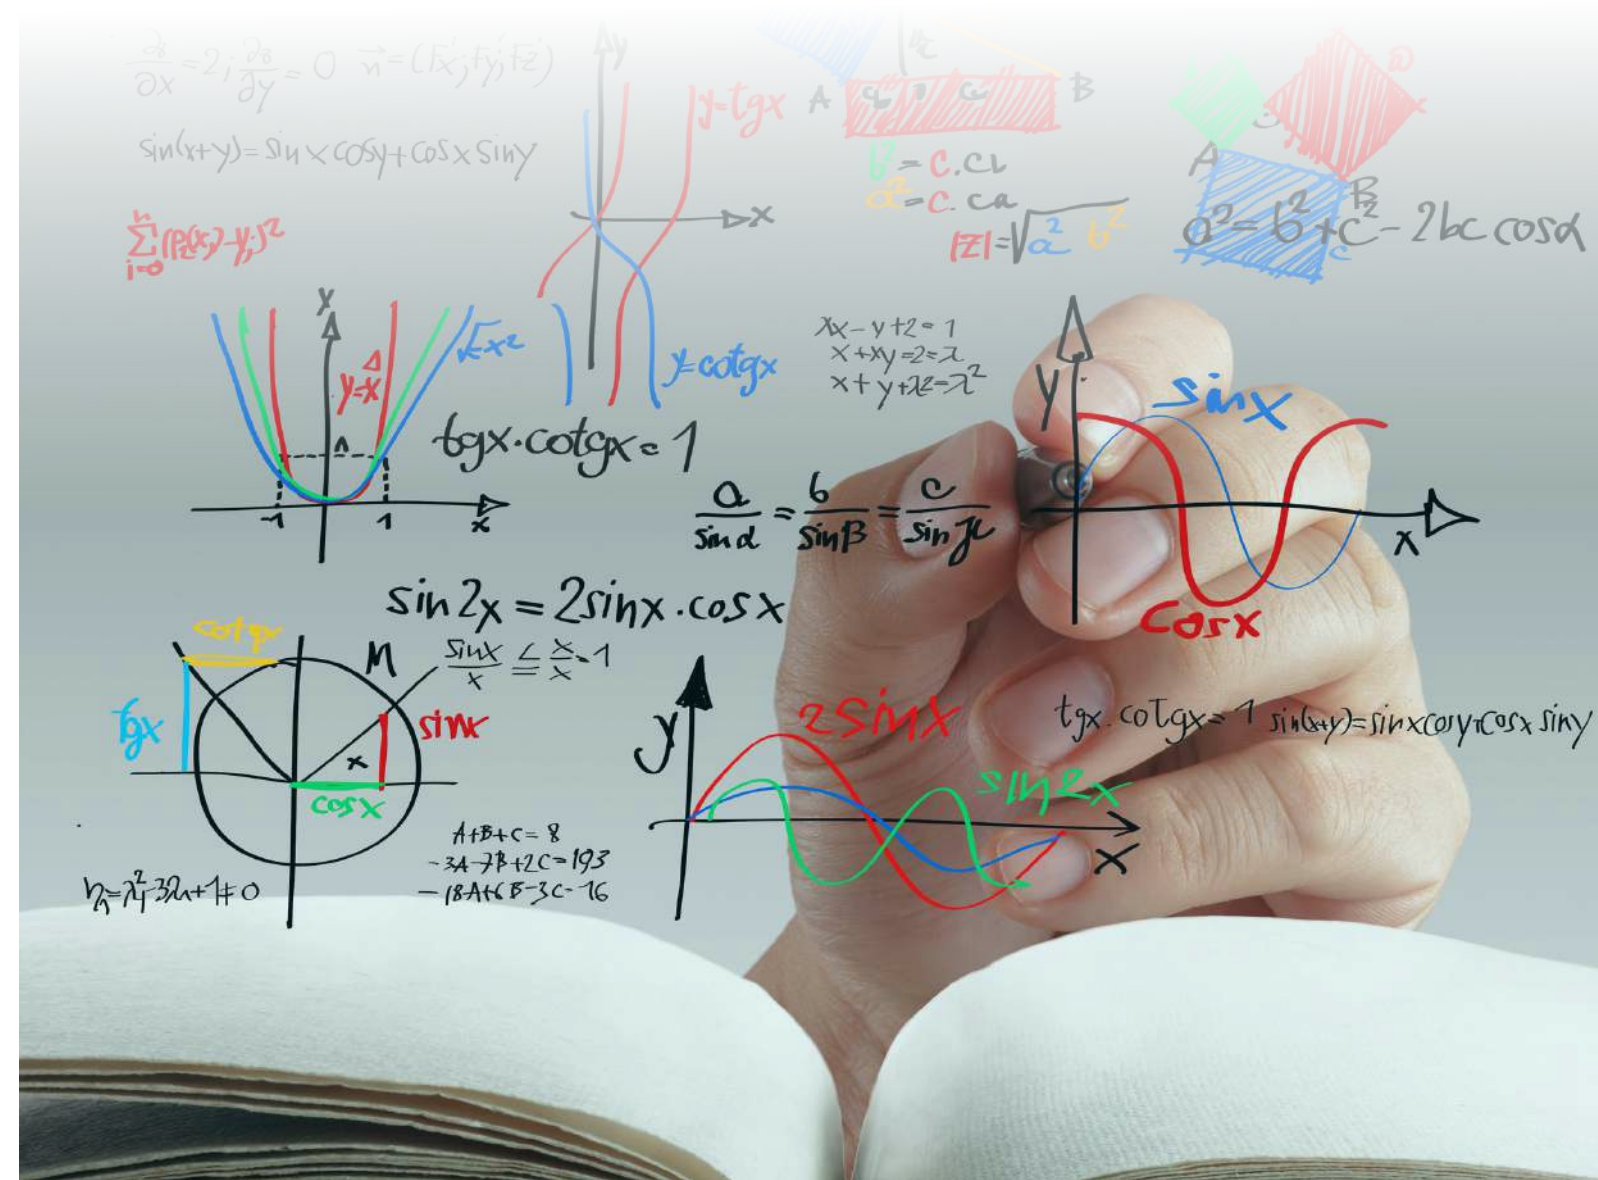 ∂z/∂x = 2; ∂z/∂y = 0 n⃗ = (Fx; Fy; Fz)
sin(x+y)=sin x cosy+cosx siny
y
y=tgx
x
y=cotgx
A B
b²= c.cb
a²= c.ca
|z|=√a² b²
A B
c
a²= b²+c²- 2bc cosα
x
y=x
√x²
-1 1 x
tgx.cotgx= 1
a/sinα = b/sinβ = c/sin
y
sinx
x
cosx
sin2x = 2sinx.cosx
cotgx
M
tgx
sinx
x
cosx
A+B+C= 8
-3A-7B+2C=193
-18A+6B-3C-16
y
2sinx
sin2x
x
tgx.cotgx= 1 sin(x+y)=sinxcosy+cosx siny